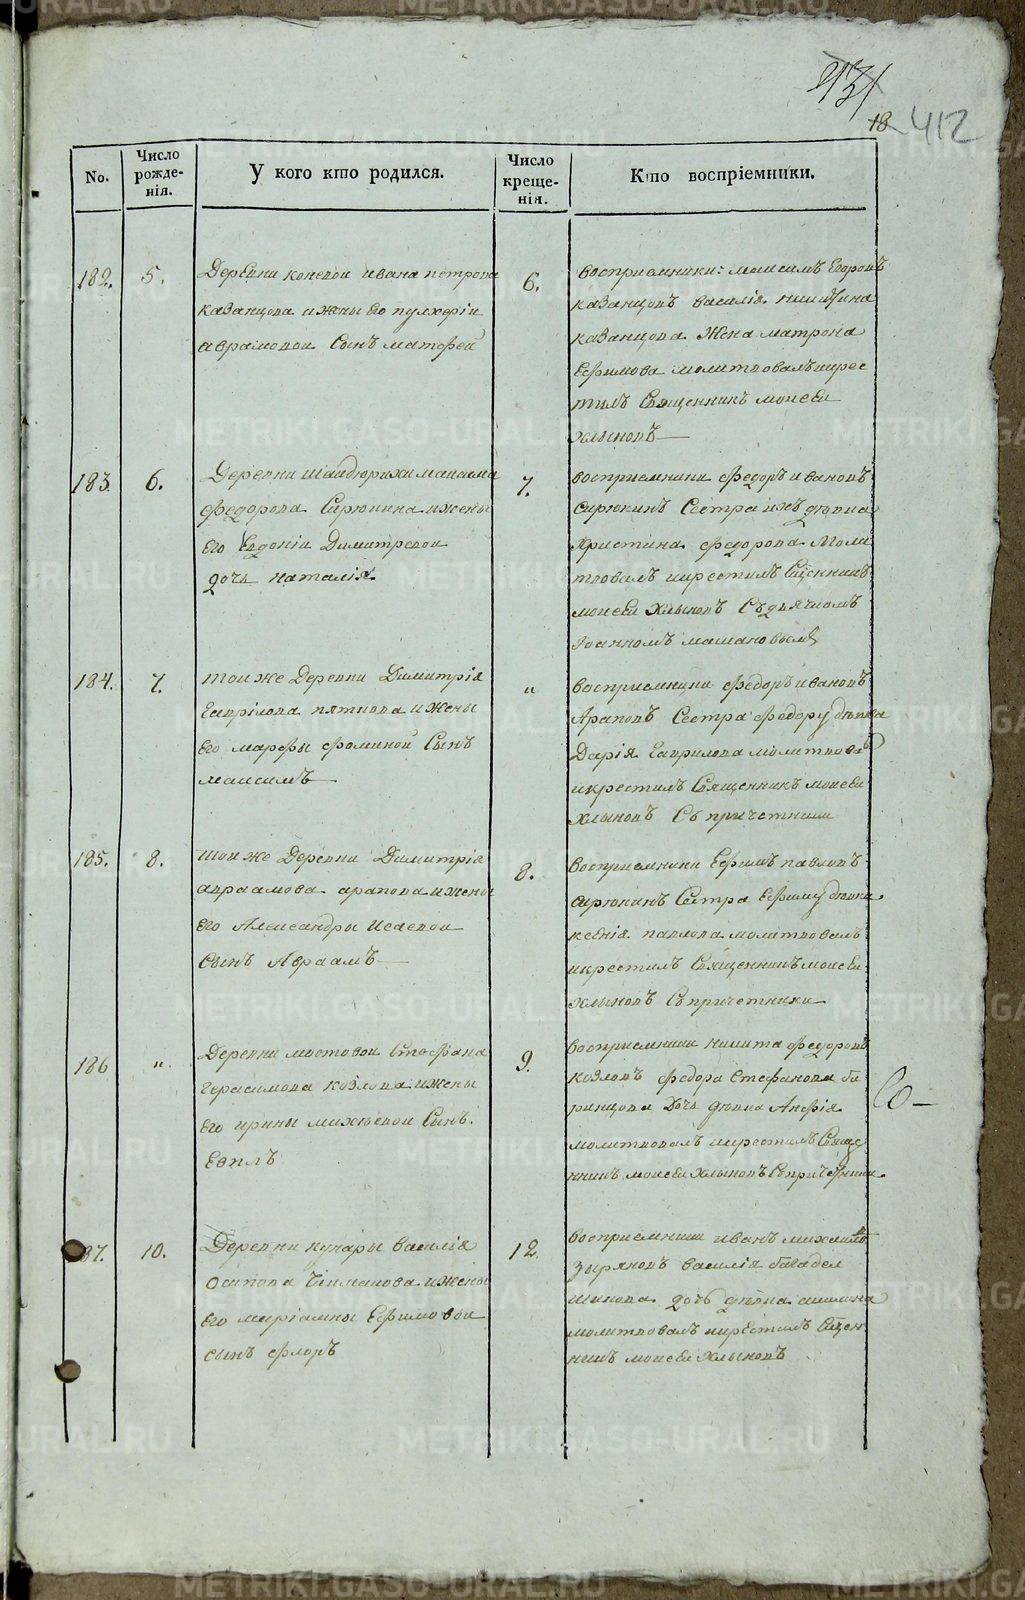 131
18 412
No.
Число рожде-нія.
У кого кто родился.
Число креще-нія.
Кто воспріемники.
182.
5.
Деревни коневой ивана петрова
казанцова и жены его пулхеріи
аврамовой Сынъ матфей
6.
воспріемники: максимъ Егоровъ
казанцовъ василія никитина
казанцова жена матрона
Ефимова молитвовалъ икрес
тилъ Священникъ моисей
хлыновъ
183.
6.
Деревни шайдюрихи
федорова Сирюкина ижены
его Евдокіи Димитревой
дочь наталія
7.
воспріемники федоръ ивановъ
сирюкинъ Сестра ихъ дѣвка
Христина федорова Моли
твовалъ икрестилъ Сщенникъ
моисей хлыновъ Съдьячкомъ
Іоанномъ
184.
7.
тойже Деревни Димитрія
Гаврілова пяткова ижены
его марфы фоминой Сынъ
максимъ
"
воспріемники федоръ ивановъ
Араповъ Сестра федору дѣвка
Дарія Гаврилова молитвовалъ
икрестилъ Священникъ моисей
хлыновъ Съ причетники
185.
8.
тойже Деревни Димитрія
авраамова арапова ижены
его Александры Исаевой
Сынъ Авраамъ
8.
воспріемники Ефимъ павловъ
сирюкинъ Сестра Ефиму дѣвка
ксенія павлова молитвовалъ
икрестилъ Священникъ моисей
хлыновъ Съпричетники
186
"
Деревни мостовой Стефана
герасимова козлова ижены
его ирины михѣевой Сынъ
Евплъ
9.
воспріемники никита федоровъ
козловъ федора Стефанова ба
ринцова Дочь дѣвка Анфія
молитвовалъ икрестилъ Свяще
нникъ моисей хлыновъ Съпричетники
87.
10.
Деревни кучары василія
осипова ижены
его маріамны Ефимовой
сынъ флоръ
12.
воспріемники иванъ михаиловъ
зыряновъ василія
шикова дочь дѣвка акилина
молитвовалъ икрестилъ Сщен
никъ моисей хлыновъ
METRIKI.GASO-URAL.RU